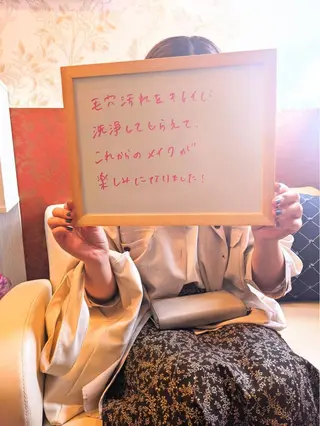 毛穴汚れをキレイに
洗浄してもらえて、
これからのメイクが
楽しみになりました!